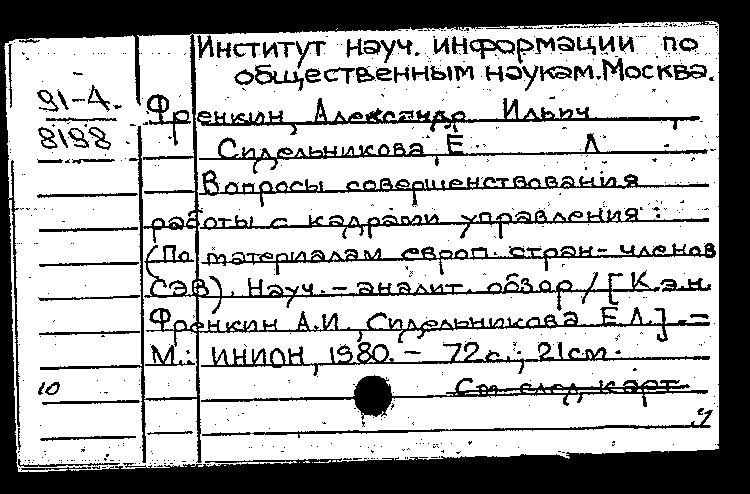 Институт науч. информации по
общественным наукам. Москва.
91-4.
8198
Френкин, Александр Ильич,
Сидельникова, Е Л
Вопросы совершенствования
работы с кадрами управления :
(По материалам европ. стран-членов
СЭВ). Науч.-аналит. обзор / [К.э.н.
Френкин А.И., Сидельникова Е.Л.]. -
М.: ИНИОН, 1980. - 72 с.; 21 см.
10
См. след. карт.